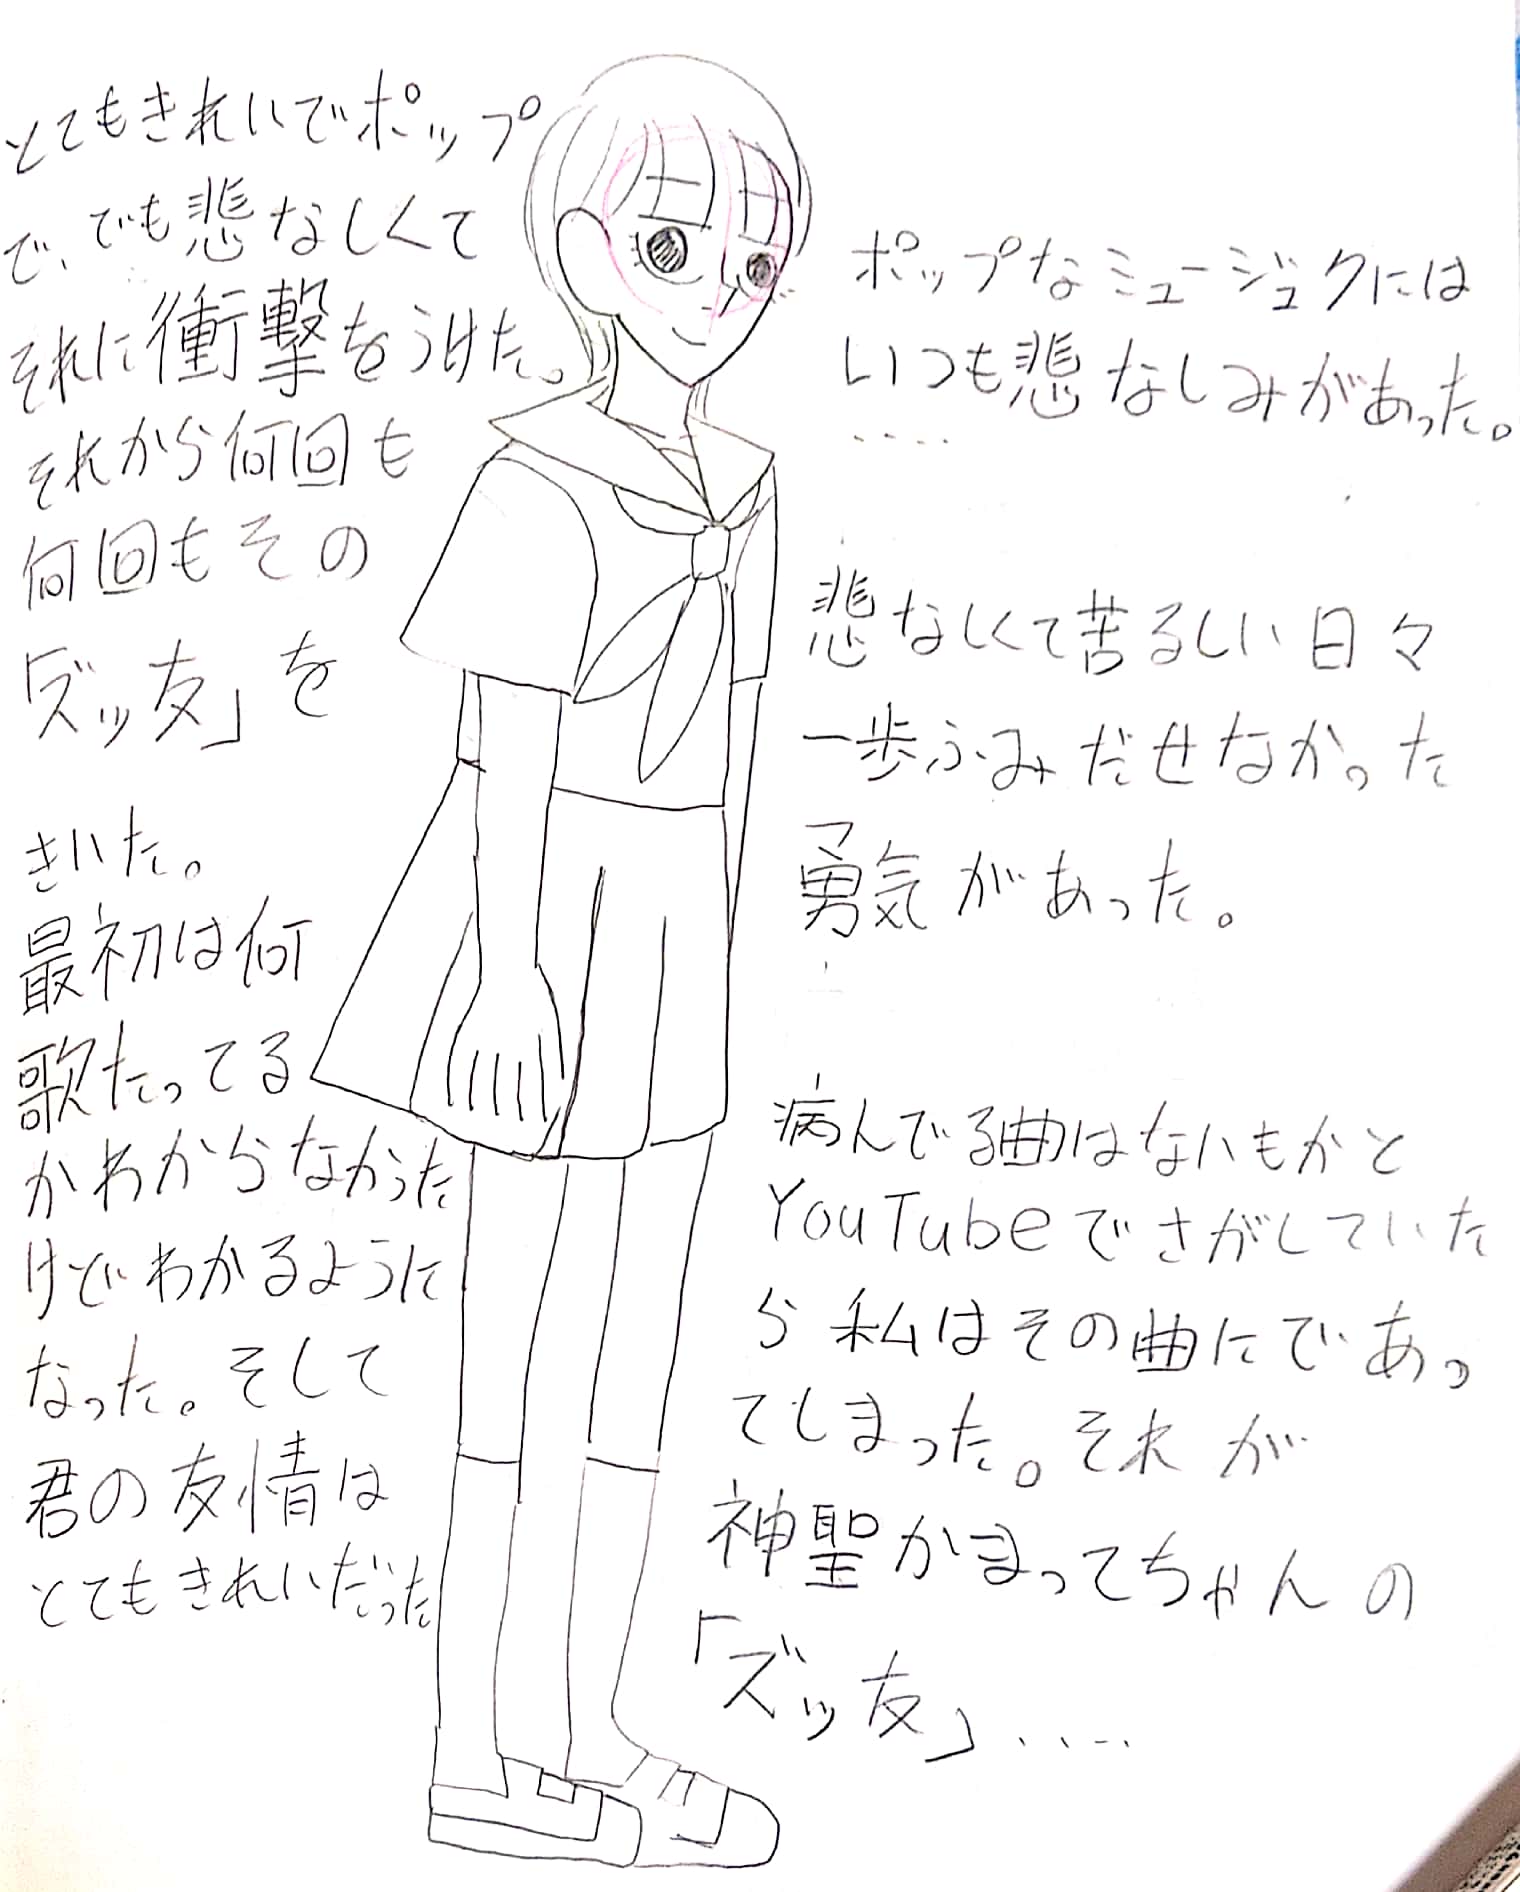 ポップなミュージュクには
いつも悲なしみがあった。
....
悲なしくて苦るしい日々
一歩ふみだせなかった
勇気があった。
病んでる曲はないもかと
YouTubeでさがしていた
ら私はその曲にであっ
てしまった。それが
神聖かまってちゃんの
「ズッ友」....
とてもきれいでポップ
で、でも悲なしくて
それに衝撃をうけた。
それから何回も
何回もその
「ズッ友」を
きいた。
最初は何
歌たってる
かわからなかった
けどわかるように
なった。そして
君の友情は
とてもきれいだった